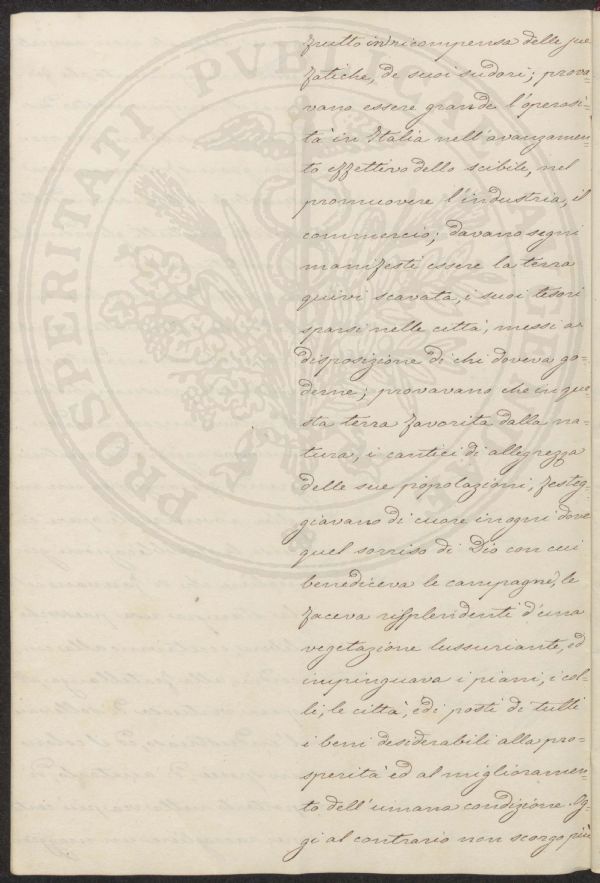 frutto in ricompensa delle sue
fatiche, de' suoi sudori; prova=
vano essere grande l'operosi=
tà in Italia nell'avanzamen=
to effettivo dello scibile, nel
promuovere l'industria, il
commercio; davano segni
manifesti essere la terra
quivi scavata, i suoi tesori
sparsi nelle città, messi a
disposizione di chi doveva go=
derne; provavano che in que=
sta terra favorita dalla na=
tura, i cantici di allegrezza
delle sue popolazioni, festeg=
giavano di cuore in ogni dove
quel sorriso di Dio con cui
benediceva le campagne, le
faceva risplendenti d'una
vegetazione lussuriante, ed
impinguava i piani, i col=
li, le città, ed i posti di tutti
i beni desiderabili alla pro=
sperità ed al miglioramen=
to dell'umana condizione. Og=
gi al contrario non scorgo più
PROSPERITATI PVBLICAE